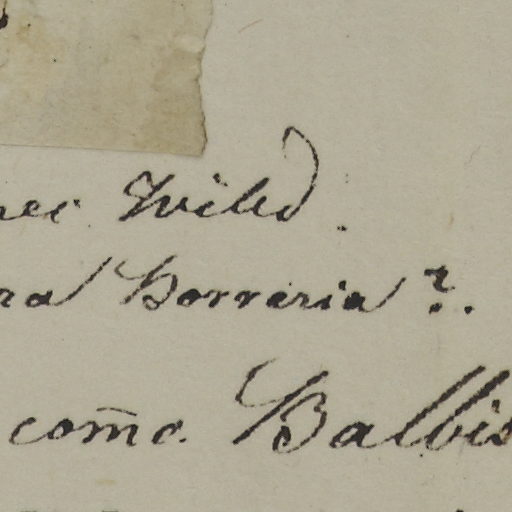 nec Willd.
ra Borreria?.
com̄. Balbis